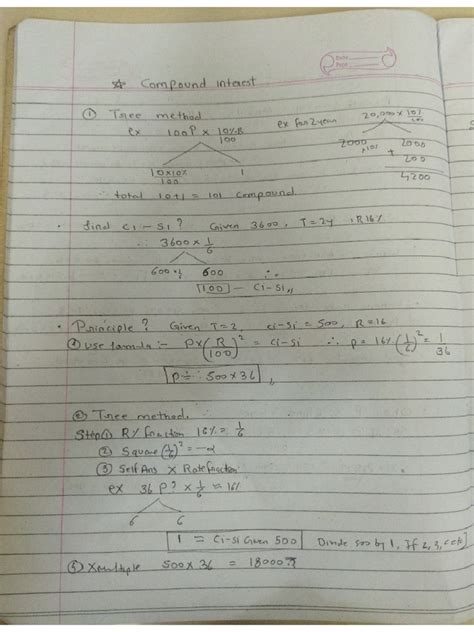 Date
☆ Compound interest
① Tree method
ex 100P × 10%R/100
ex for 2 year 20,000 × 10%/100
2000 2000
×10% + 200
4200
10×10%/100 1
∴ total 10+1 = 101 compound
• find ci-si? Given 3600, T=2y, R16%
∴ 3600 × 1/6
600 × 1/6 600 ∴
100 — ci-si,,
• Principle? Given T=2, ci-si = 500, R=16
① use famula :- P×(R/100)² = ci-si ∴ p = 16% (1/6)² = 1/36
p ÷ 500×36
② Tree method.
Step① R% fraction 16% = 1/6
② Square (1/6)² =
③ Self Ans × Rate fraction
ex 36 P? × 1/6 16%
6 6
1 = ci-si Given 500 Divide 500 by 1, If 2, 3, etc
⑤ × Multiple 500×36 = 18000